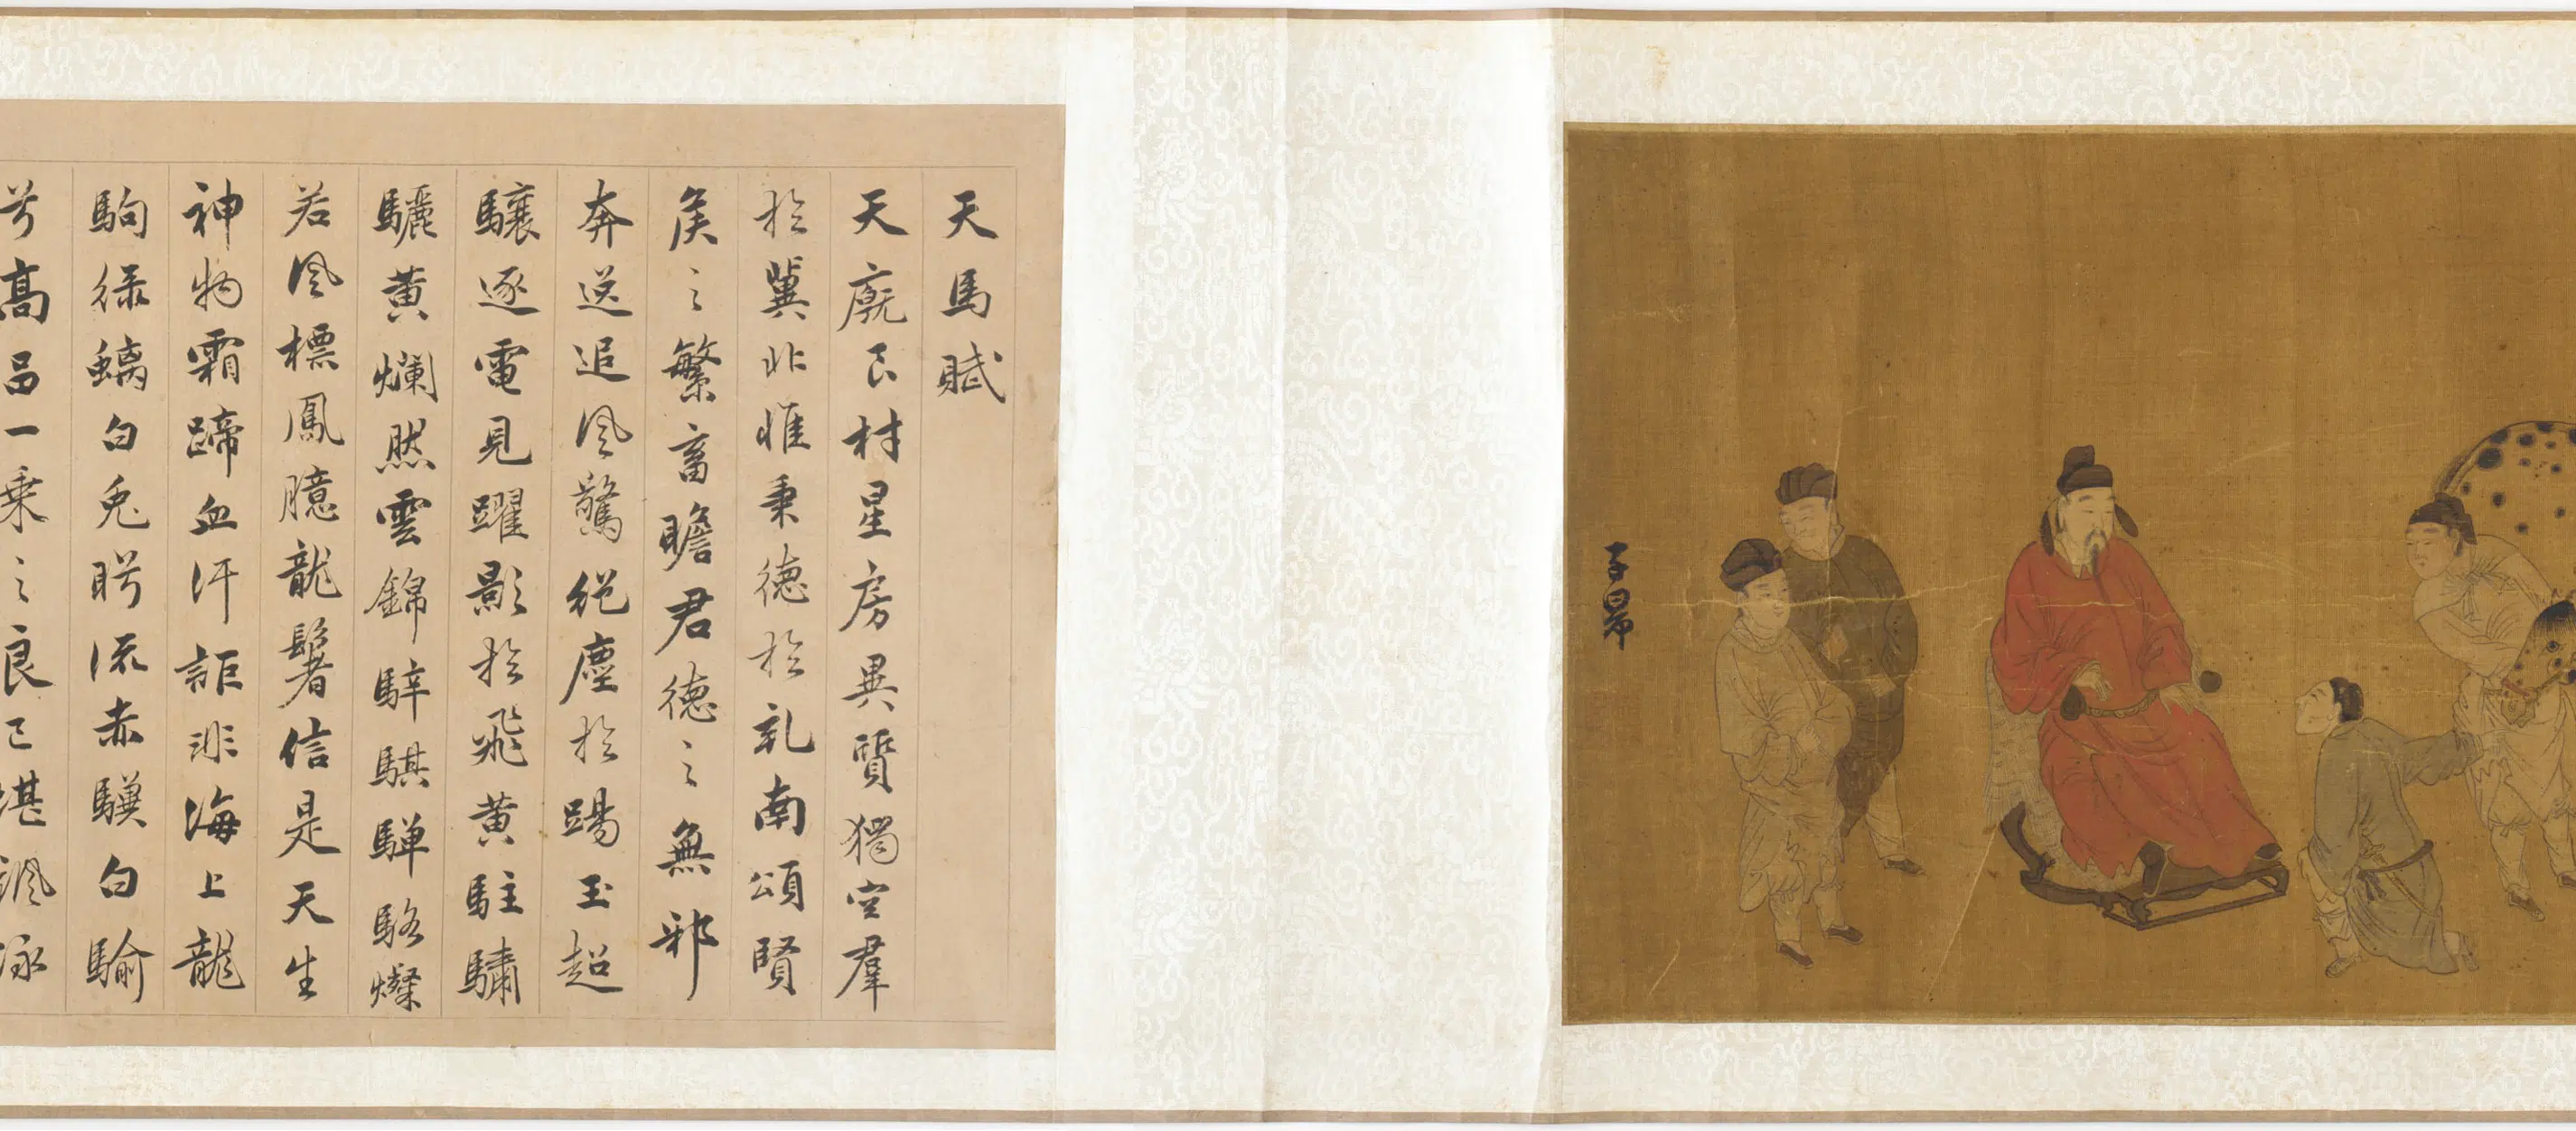 子昂
天馬賦
天廐良材星房異質獨空羣
於冀北惟秉德於乳南頌賢
侯之繁畜瞻君德之無邪
奔逸追風驚絕塵於踢玉超
驤逐電見躍影於飛黃駐驌
驪黃爛然雲錦騂騏驒駱燦
若風標鳳臆龍鬐信是天生
神物霜蹄血汗詎非海上龍
駒緑螭白兔盻流赤驥白騟
高一乗之良已堪諷詠